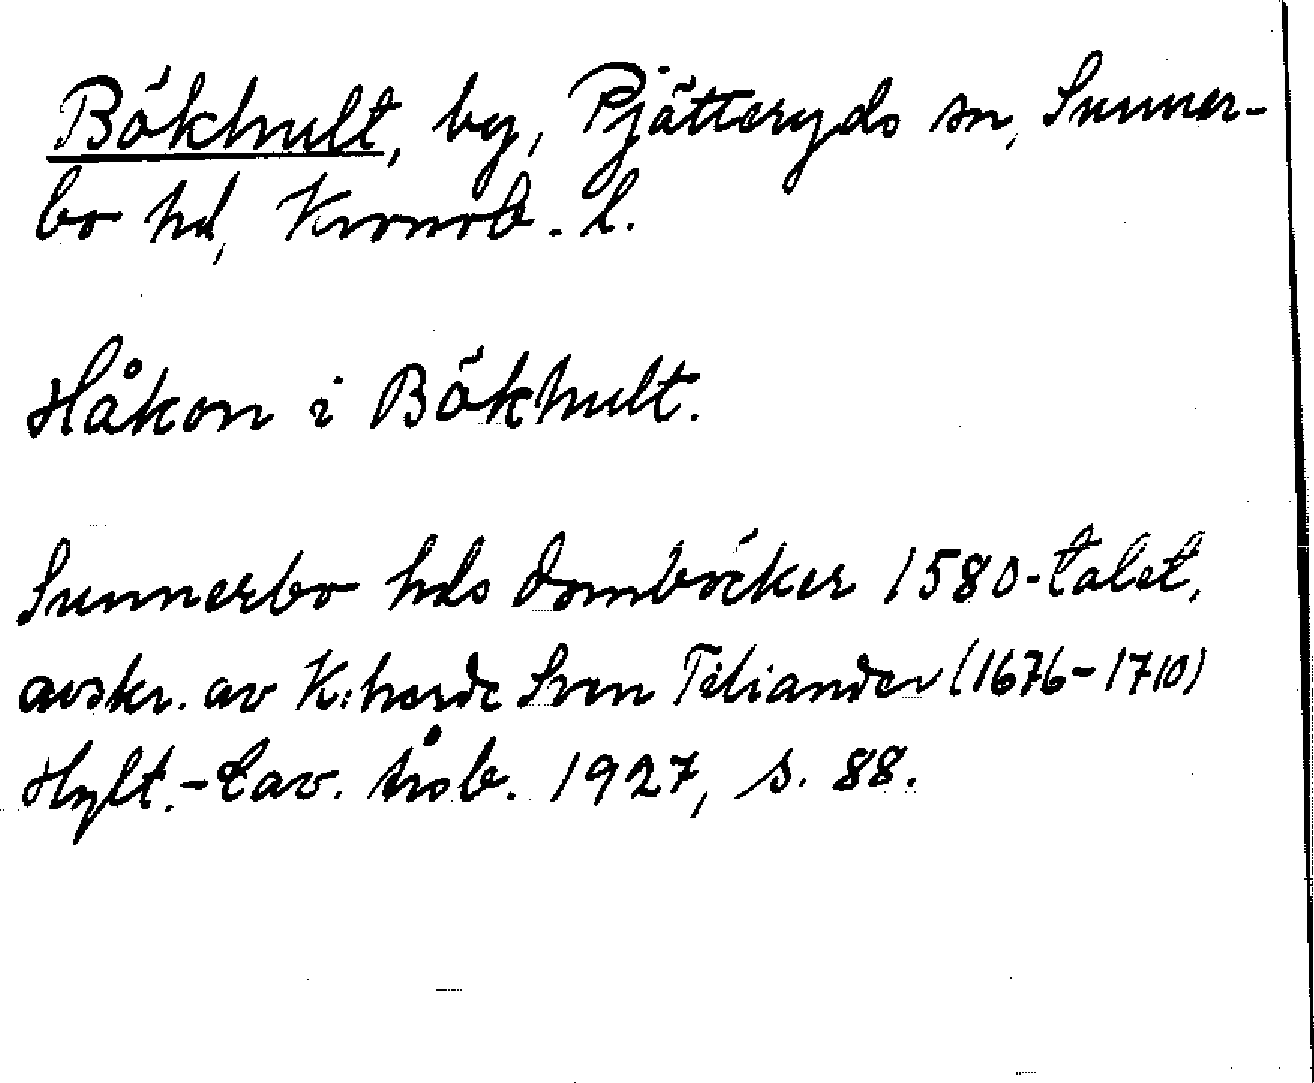 Bökhult, by, Pjätteryds sn, Sunner-
bo hd, Kronob. l.
Håkon i Bökhult.
Sunnerbo hds domböcker 1580-talet,
avskr. av K:herde Sven Tiliander (1676-1710)
Hylt.-Cav. årsb. 1927, s. 88.